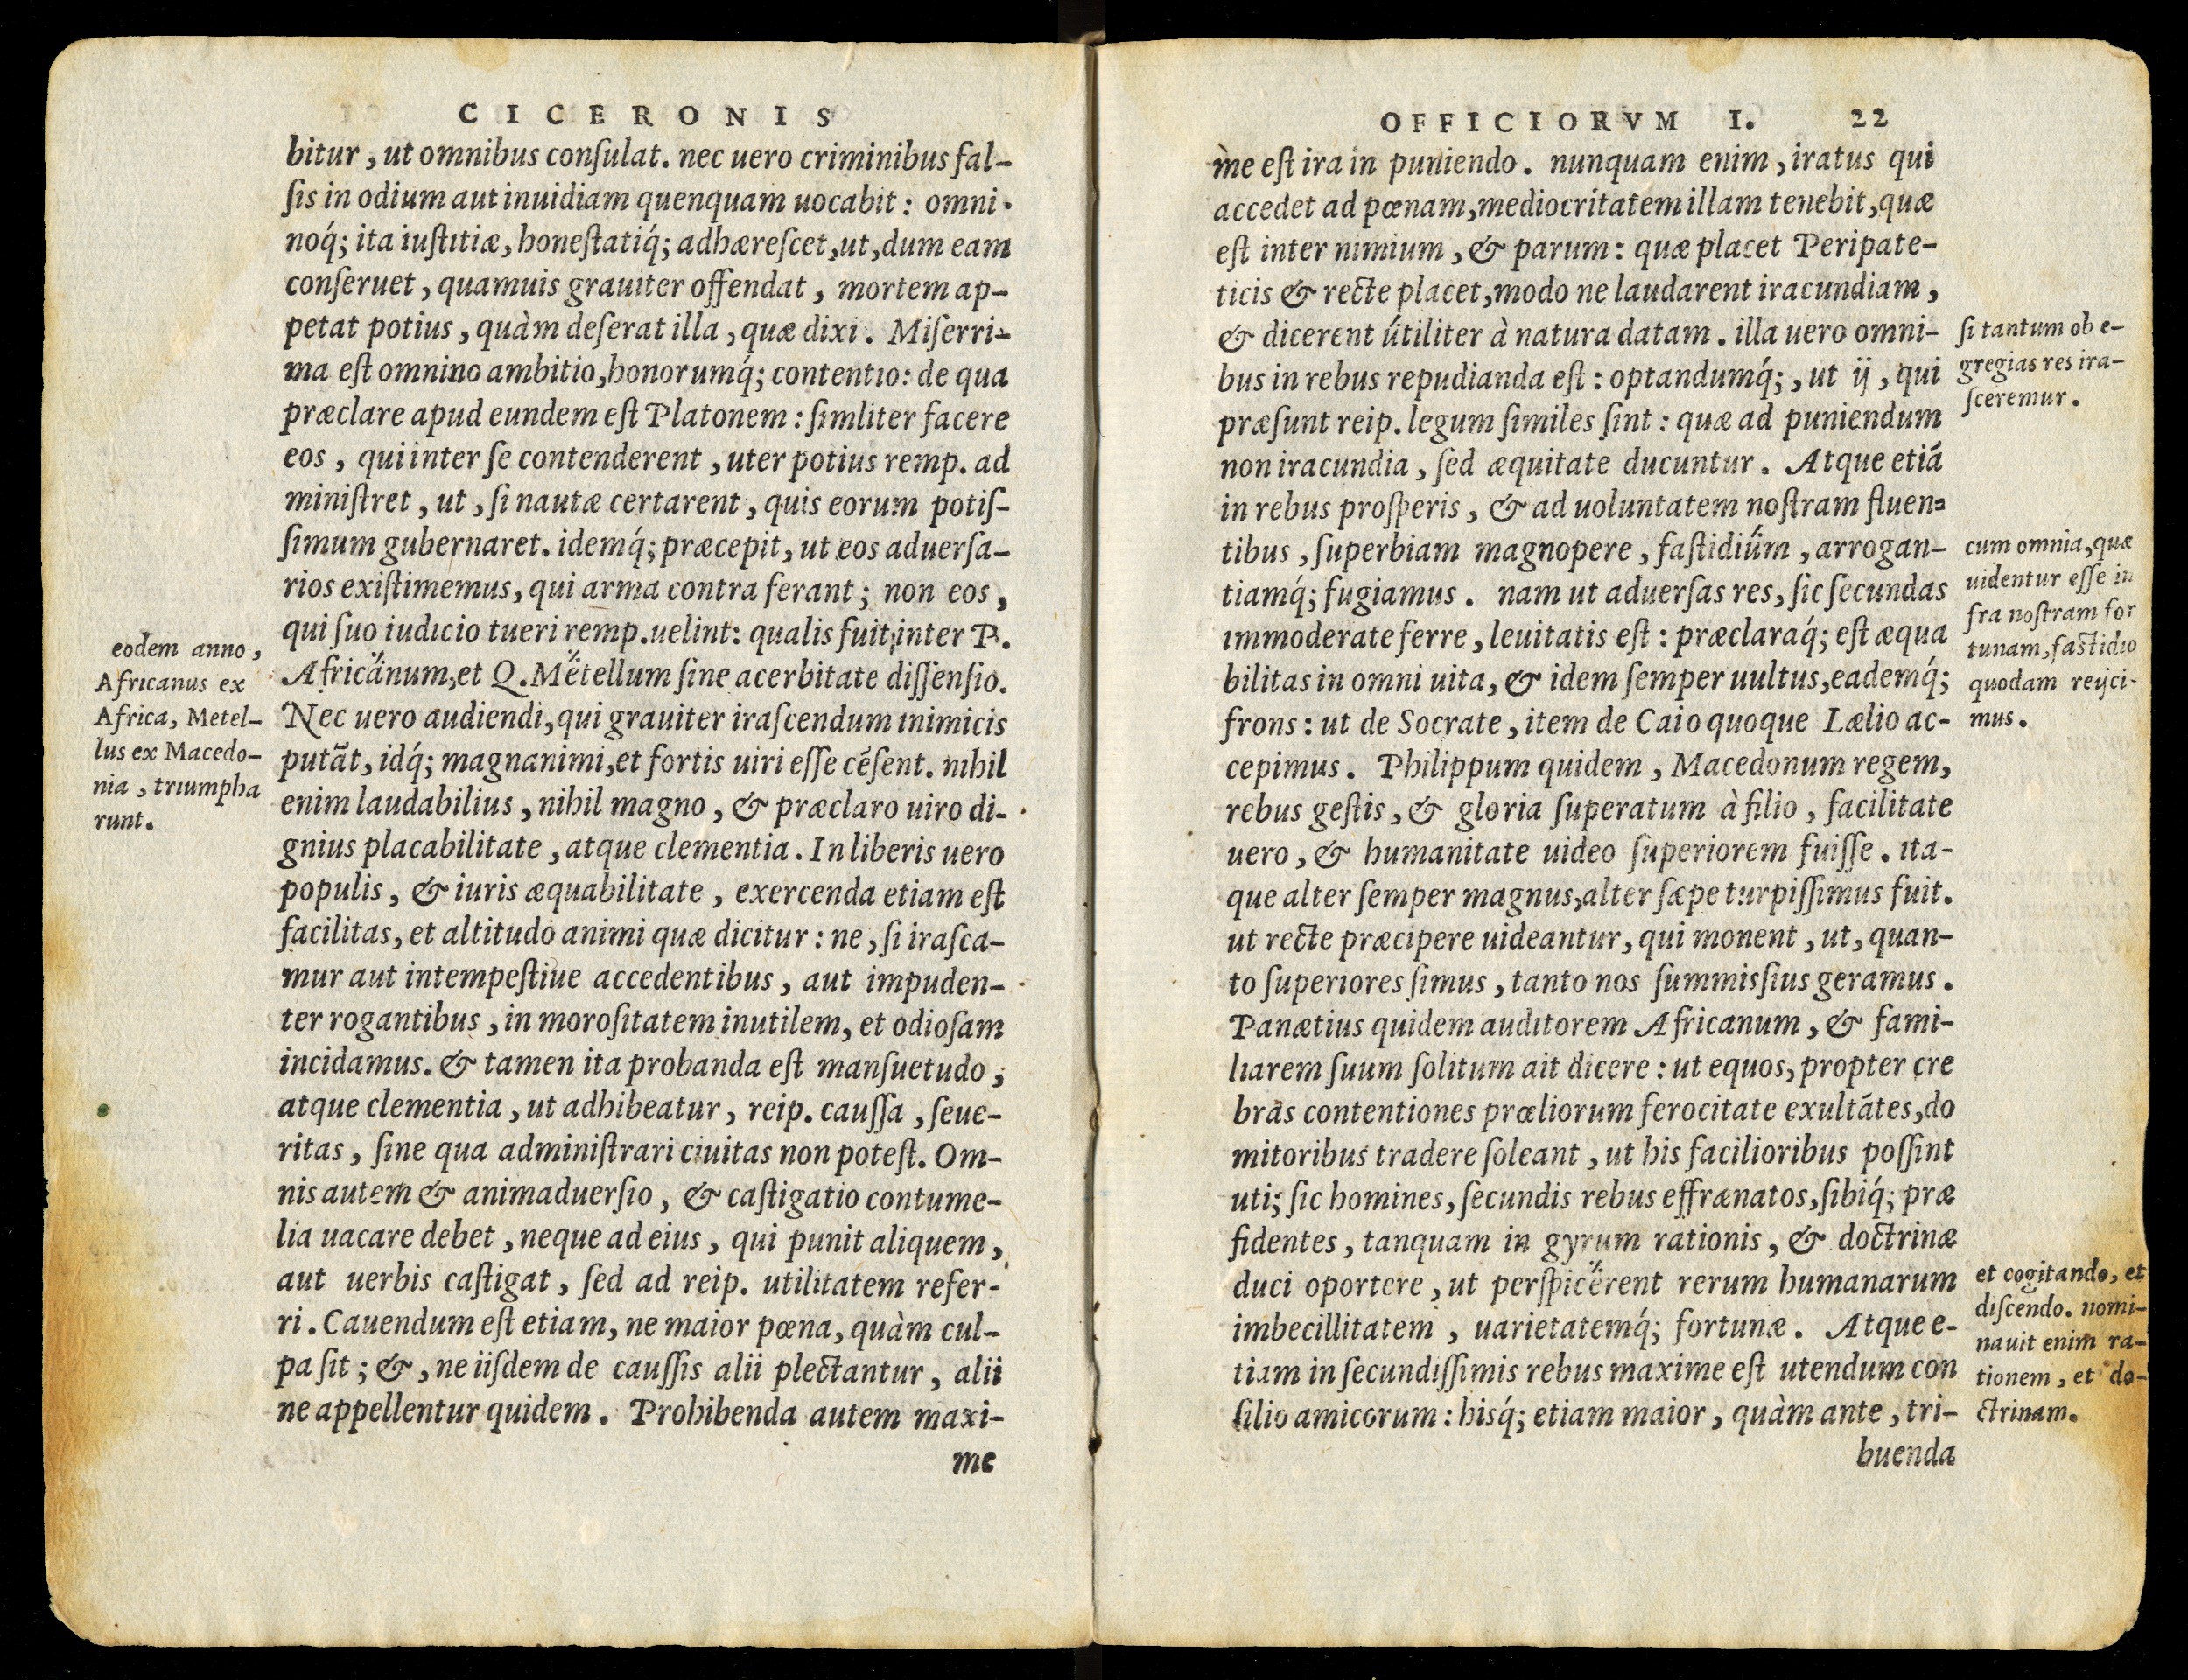 CICERONIS
bitur, ut omnibus conſulat. nec uero criminibus fal-
ſis in odium aut inuidiam quenquam uocabit: omni-
noq́; ita iuſtitiæ, honeſtatiq́; adhæreſcet, ut, dum eam
conſeruet, quamuis grauiter offendat, mortem ap-
petat potius, quàm deſerat illa, quæ dixi. Miſerri-
ma eſt omnino ambitio, honorumq́; contentio: de qua
præclare apud eundem eſt Platonem: ſimliter facere
eos, qui inter ſe contenderent, uter potius remp. ad
miniſtret, ut, ſi nautæ certarent, quis eorum potiſ-
ſimum gubernaret. idemq́; præcepit, ut eos aduerſa-
rios exiſtimemus, qui arma contra ferant; non eos,
qui ſuo iudicio tueri remp. uelint: qualis fuit inter P.
Africanum, et Q. Metellum ſine acerbitate diſſenſio.
Nec uero audiendi, qui grauiter iraſcendum inimicis
putãt, idq́; magnanimi, et fortis uiri eſſe cẽſent. nihil
enim laudabilius, nihil magno, & præclaro uiro di-
gnius placabilitate, atque clementia. In liberis uero
populis, & iuris æquabilitate, exercenda etiam eſt
facilitas, et altitudo animi quæ dicitur: ne, ſi iraſca-
mur aut intempeſtiue accedentibus, aut impuden-
ter rogantibus, in moroſitatem inutilem, et odioſam
incidamus. & tamen ita probanda eſt manſuetudo,
atque clementia, ut adhibeatur, reip. cauſſa, ſeue-
ritas, ſine qua adminiſtrari ciuitas non poteſt. Om-
nis autem & animaduerſio, & caſtigatio contume-
lia uacare debet, neque ad eius, qui punit aliquem,
aut uerbis caſtigat, ſed ad reip. utilitatem refer-
ri. Cauendum eſt etiam, ne maior pœna, quàm cul-
pa ſit; &, ne iiſdem de cauſſis alii plectantur, alii
ne appellentur quidem. Prohibenda autem maxi-
me
eodem anno,
Africanus ex
Africa, Metel-
lus ex Macedo-
nia, triumpha
runt.
OFFICIORVM I. 22
me eſt ira in puniendo. nunquam enim, iratus qui
accedet ad pœnam, mediocritatem illam tenebit, quæ
eſt inter nimium, & parum: quæ placet Peripate-
ticis & recte placet, modo ne laudarent iracundiam,
& dicerent útiliter à natura datam. illa uero omni-
bus in rebus repudianda eſt: optandumq́;, ut ij, qui
præſunt reip. legum ſimiles ſint: quæ ad puniendum
non iracundia, ſed æquitate ducuntur. Atque etiã
in rebus proſperis, & ad uoluntatem noſtram fluen-
tibus, ſuperbiam magnopere, faſtidium, arrogan-
tiamq́; fugiamus. nam ut aduerſas res, ſic ſecundas
immoderate ferre, leuitatis eſt: præclaraq́; eſt æqua
bilitas in omni uita, & idem ſemper uultus, eademq́;
frons: ut de Socrate, item de Caio quoque Lælio ac-
cepimus. Philippum quidem, Macedonum regem,
rebus geſtis, & gloria ſuperatum à filio, facilitate
uero, & humanitate uideo ſuperiorem fuiſſe. ita-
que alter ſemper magnus, alter ſæpe turpiſſimus fuit.
ut recte præcipere uideantur, qui monent, ut, quan-
to ſuperiores ſimus, tanto nos ſummiſſius geramus.
Panætius quidem auditorem Africanum, & fami-
liarem ſuum ſolitum ait dicere: ut equos, propter cre
bras contentiones prœliorum ferocitate exultãtes, do
mitoribus tradere ſoleant, ut his facilioribus poſſint
uti; ſic homines, ſecundis rebus effrænatos, ſibiq́; præ
fidentes, tanquam in gyrum rationis, & doctrinæ
duci oportere, ut perſpicerent rerum humanarum
imbecillitatem, uarietatemq́; fortunæ. Atque e-
tiam in ſecundiſſimis rebus maxime eſt utendum con
ſilio amicorum: hisq́; etiam maior, quàm ante, tri-
buenda
ſi tantum ob e-
gregias res ira-
ſceremur.
cum omnia, quæ
uidentur eſſe in
fra noſtram for
tunam, faſtidio
quodam reijci-
mus.
et cogitando, et
diſcendo. nomi-
nauit enim ra-
tionem, et do-
ctrinam.